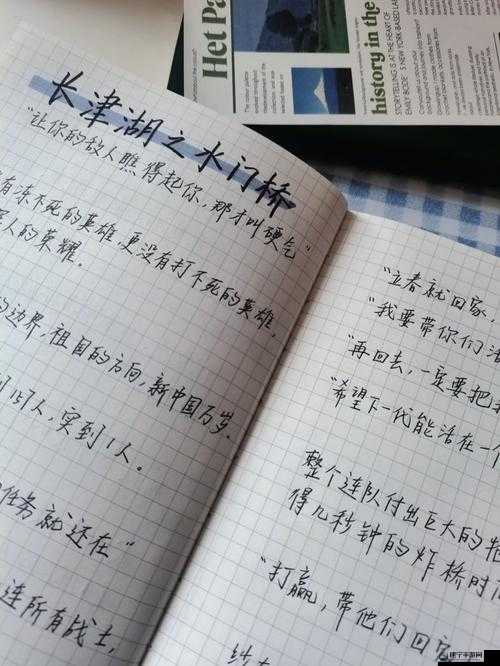 Het Pa
history in the
STORYTELLING IS AT THE HEART OF
EMILY BODE'S NEW YORK-BASED LAB
长津湖之水门桥
"让你的敌人瞧得起你,那才叫硬气"
有冻不死的英雄,更没有打不死的英雄,
军人的荣耀。
的边界,祖国的方向,新中国万岁.
到157人,实到1人。
任务就还在"
连所有战士,
"立春就回家,
"我要带你们活
"再回去,一定要把
"希望下一代能活在一个
整个连队付出巨大的牺
得几秒钟的炸桥时间
"打赢,带他们回家